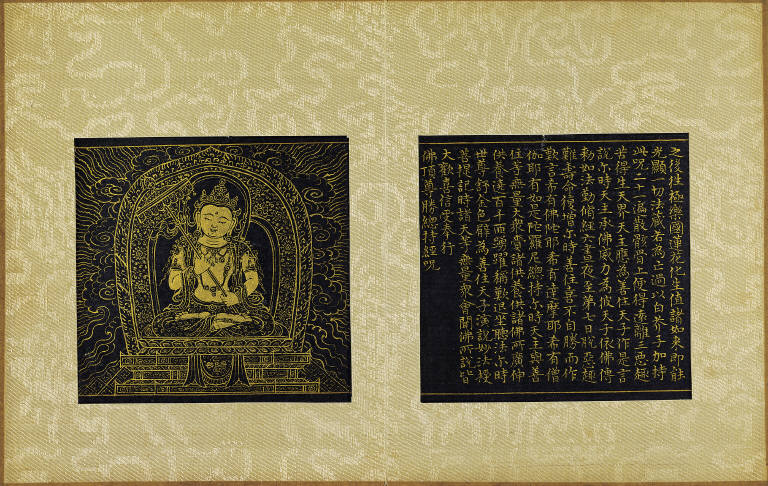 之後往極樂國蓮花化生值諸如來即能
光顯一切法藏若為亡過以白芥子加持
此咒二十一遍散骸骨上便得遠離三惡趣
苦得生天界天主應為善住天子作是言
說尒時天主承佛威力為彼天子依佛傳
勅如法勤脩經六晝夜至第七日脫惡趣
難壽命復增尒時善住喜不自勝而作
歎言希有佛陀耶希有達摩耶希有僧
伽耶有如是陀羅尼總持尒時天主與善
住等無量天眾齎諸供養供諸佛所廣伸
供養遶百千帀踴躍稱歎退坐聽法尒時
世尊舒金色臂為善住天子演說妙法授
菩提記時諸天等無量眾會聞佛所說皆
大歡喜信受奉行
佛頂尊勝總持經咒